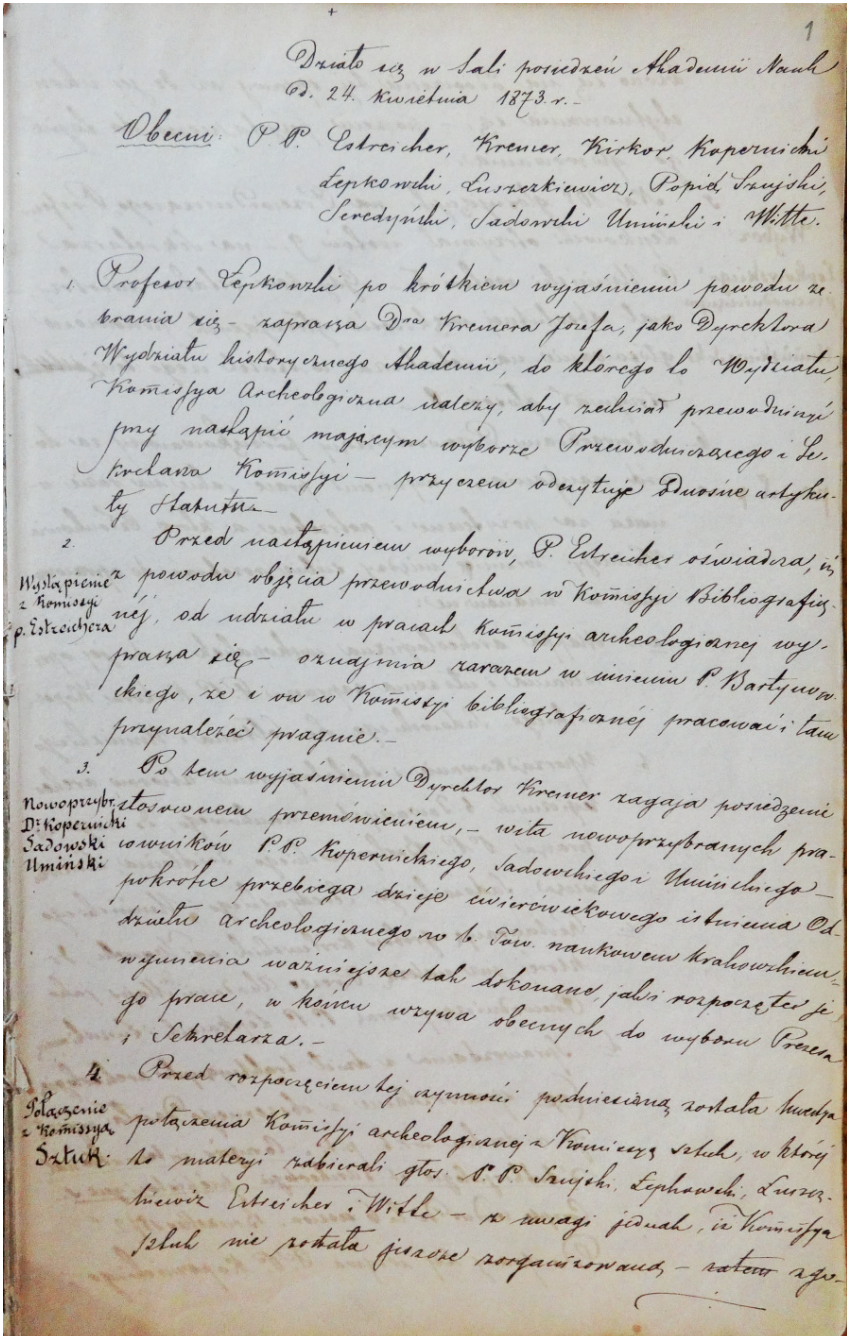 1
Działo się w Sali posiedzeń Akademii Nauk
d. 24. Kwietnia 1873. r. –
Obecni: P.P. Estreicher, Kremer, Kirkor, Kopernicki
Łepkowski, Łuszczkiewicz, Popiel, Szujski,
Seredyński, Sadowski Umiński i Witte.
1. Profesor Łepkowski po krótkiem wyjaśnieniu powodu ze-
brania się – zaprasza Dra Kremera Józefa, jako Dyrektora
Wydziału historycznego Akademii, do którego to Wydziału,
Komissya Archeologiczna należy, aby zechciał przewodniczyć
przy nastąpić mającym wyborze Przewodniczącego i Se-
kretarza Komissyi – przyczem odczytuje odnośne artyku-
ły Statutu –
2. Przed nastąpieniem wyborów, P. Estreicher oświadcza, iż
Wystąpienie
z Komissyi
p. Estreichera
z powodu objęcia przewodnictwa w Komissyi Bibliograficz-
néj, od udziału w pracach Komissyi archeologicznej wy-
prasza się – oznajmia zarazem w imieniu P. Bartynow-
skiego, że i on w Komissyi bibliograficznéj pracować i tam
przynależeć pragnie. –
3. Po tem wyjaśnieniu Dyrektor Kremer zagaja posiedzenie
Nowoprzybr.
Dr. Kopernicki
Sadowski
Umiński
stosownem przemówieniem, – wita nowoprzybranych pra-
cowników P.P. Kopernickiego, Sadowskiego i Umińskiego –
pokrótce przebiega dzieje ćwierćwiekowego istnienia Od-
działu archeologicznego w b. Tow. naukowem Krakowskiem,
wymienia ważniejsze tak dokonane, jak i rozpoczęte je-
go prace, w końcu wzywa obecnych do wyboru Prezesa
i Sekretarza. –
4. Przed rozpoczęciem tej czynności podniesioną została kwestya
Połączenie
z Komissyą
Sztuk.
połączenia Komissyi archeologicznej z Komissyą sztuk, w której
to materyi zabierali głos. P.P. Szujski, Łepkowski, Łuszcz-
kiewicz Estreicher i Witte – z uwagi jednak, iż Komissya
sztuk nie została jeszcze zorganizowaną – zatem zgo-